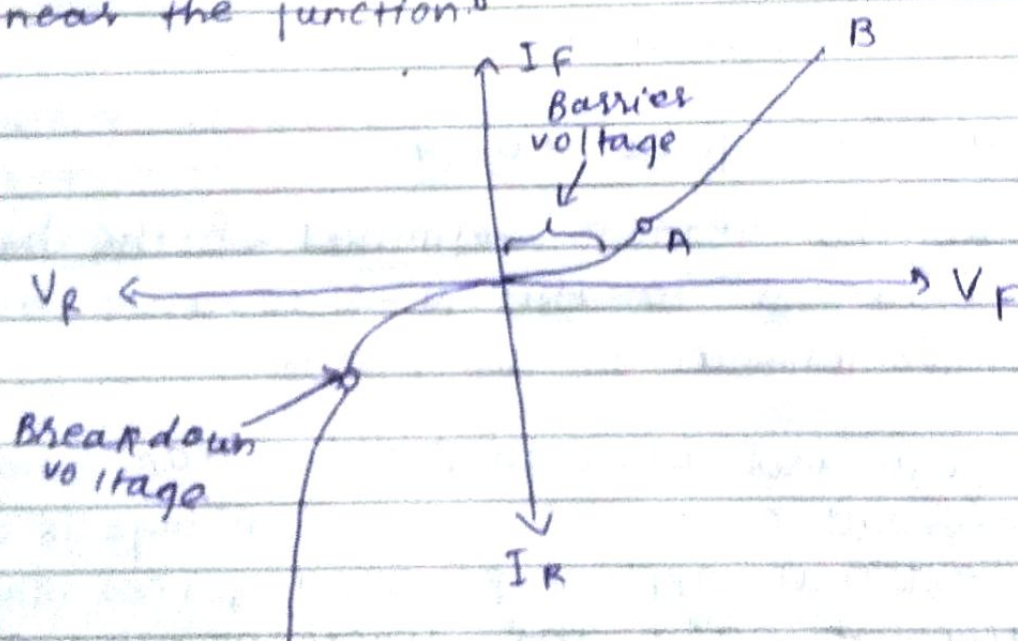 near the junction
I F
B
Barrier
voltage
A
V R
V F
Breakdown
voltage
I R